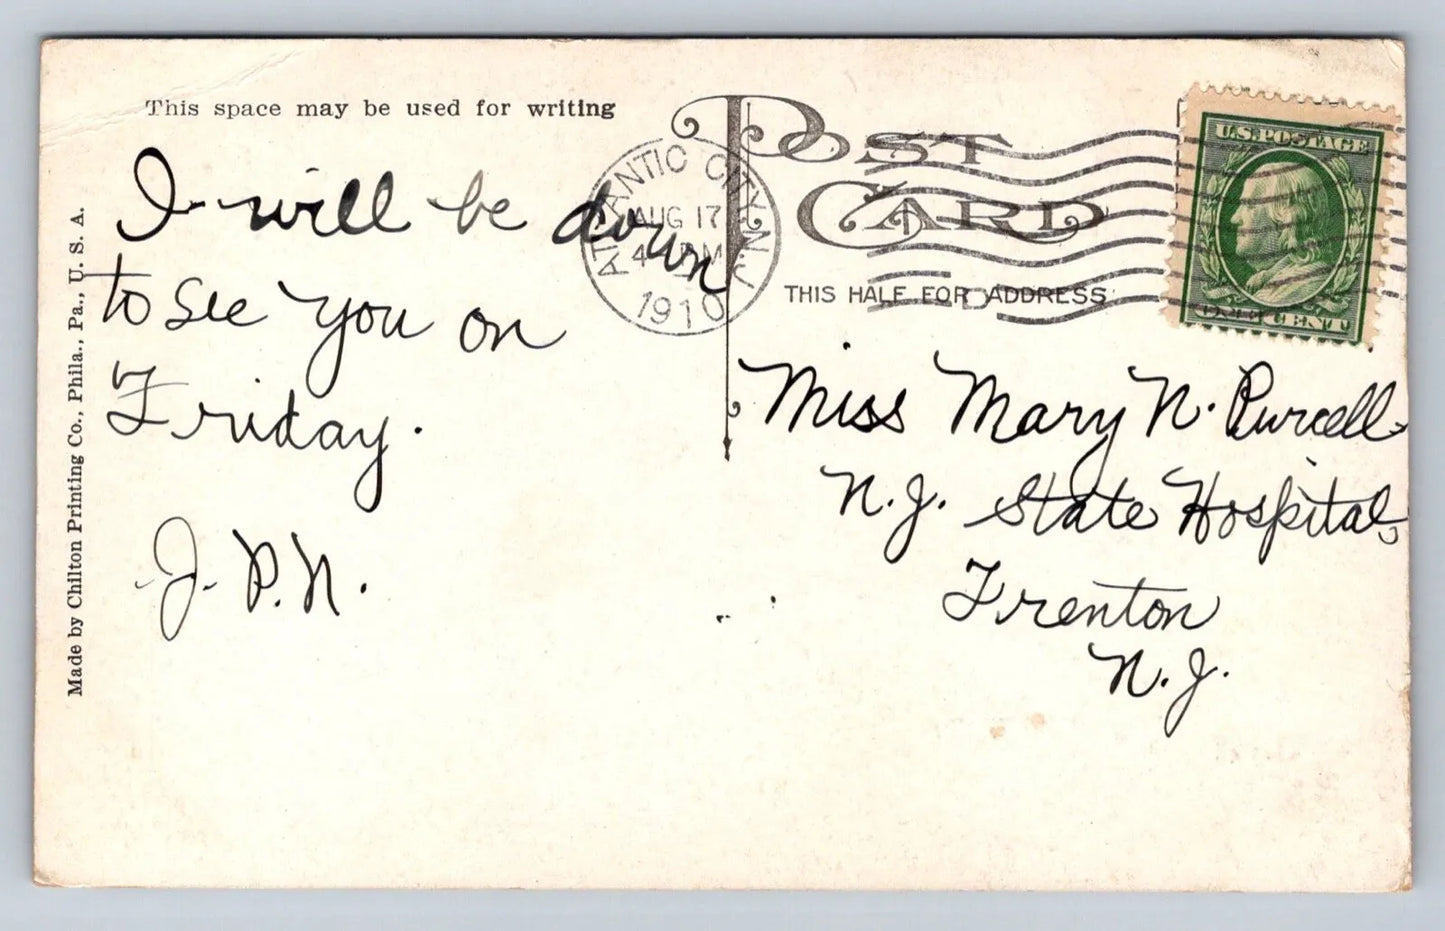 This space may be used for writing
I will be down
to see you on
Friday.
J. P. N.
Made by Chilton Printing Co., Phila., Pa., U. S. A.
POST
CARD
THIS HALF FOR ADDRESS
ATLANTIC CITY, N.J.
AUG 17
4 PM
1910
D
U.S. POSTAGE
ONE CENT
Miss Mary N. Purcell
N. J. State Hospital,
Trenton
N. J.